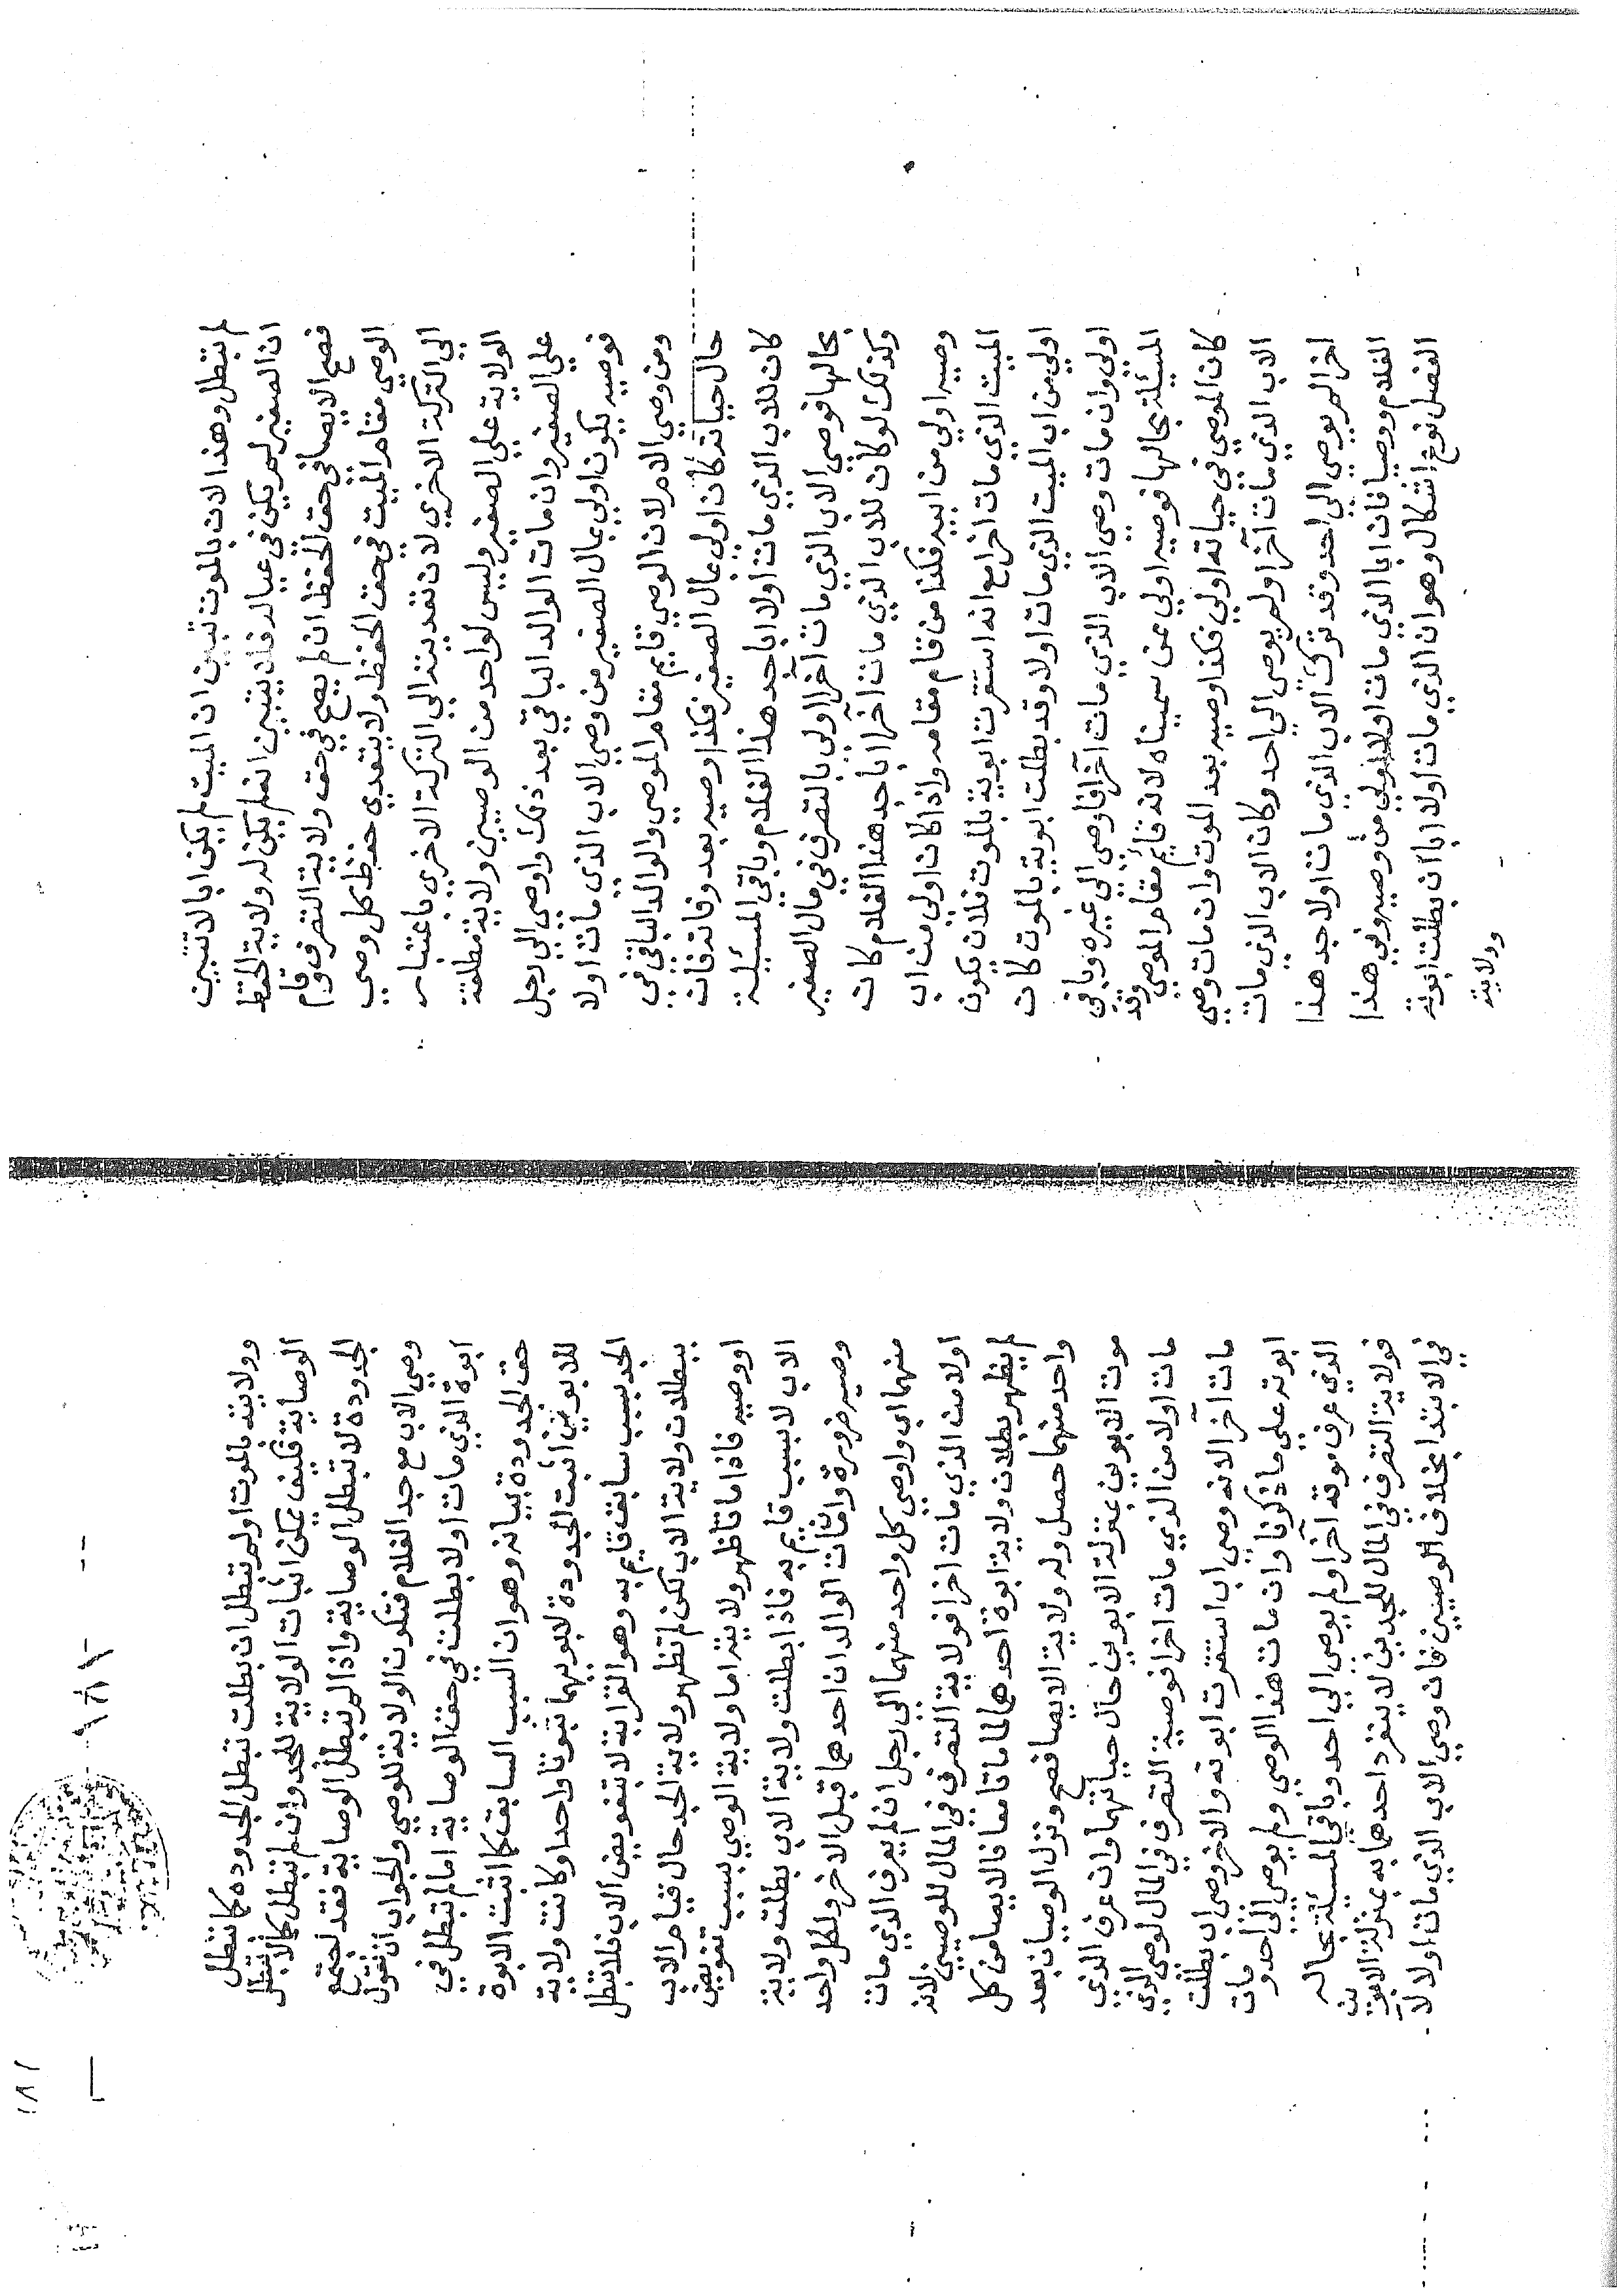 لم تبطل وهذا لان بالموت تبين ان الميت لم يكن ابا لا تتبين
ان الصغير لم يكن في عياله فان يتبين انه لم يكن له ولاية الحفظ
فصح الايصا في حق الحفظ ان لم يصح في حق ولاية التصرف وقام
الوصي مقام الميت في حق الحفظ ولا يتعدي حفظ كل وصي
الي التركة الاخري لان تعديته الي التركة الاخري باعتبار
الولاية علي الصغير وليس لواحد من الوصيين ولاية مطلقة
علي الصغير وان مات الوالد الباقي بعد ذلك واوصي الي رجل
فوصيه يكون اولي بمال الصغير من وصي الاب الذي مات اولا
ومن وصي الام لان الوصي قايم مقام الموصي والوالد الباقي في
حال حياته كان اولي بمال الصغير فكذا وصيه بعد وفاته فان
كان للاب الذي مات اولا اباجد هذا الغلام وباقي المسئلة
بحالها فوصي الاب الذي مات آخرا اولي بالتصرف في مال الصغير
وكذلك لو كان للاب الذي مات آخرا اباجد هذا الغلام كان
وصيه اولي من ابيه فكذا من قام مقامه واذا كان اولي من اب
الميت الذي مات اخرا مع انه استقرت ابويته بالموت فلان يكون
اولي من اب الميت الذي مات اولا وقد بطلت ابويته بالموت كان
اولي وان مات وصي الاب الذي مات آخرا فاوصي الي غيره وباقي
المسئلة بحالها فوصيه اولي عمن سميناه لانه قائم مقام الموصي وقد
كان الموصي في حياته اولي فكذا وصيه بعد الموت وان مات وصي
الاب الذي مات آخرا ولم يوصي الي احد وكان الاب الذي مات
اخرا لم يوصي الي احد وقد ترك الاب الذي مات اولا جد هذا
الغلام ووصيا فان ابا الذي مات اولا اولي من وصيه وفي هذا
الفصل نوع اشكال وهو ان الذي مات اولا ابا ان بطلت ابوته
وولايته
وولايته بالموت اولم تبطل ان بطلت تبطل الجدوده كما تبطل
الوصاية فكيف يمكن اثبات الولاية للجد وان لم تبطل كما لا تبطل
الجدودة لا تبطل الوصاية واذا لم تبطل الوصاية فقد اجتمع
وصي الاب مع جد الغلام فتكون الولاية للوصي والجواب ان نقول
ابوة الذي مات اولا بطلت في حق الوصاية اما لم تبطل في
حق الجدودة بيانه وهو ان السبب السابق كما اثبت الابوة
للابوين اثبت الجدودة لابويهما ثبوتا واحدا وكانت ولاية
الجد بسبب سابق قايم به وهو القرابة لا بتفويض الاب فلا تبطل
ببطلان ولاية الاب لكن لم تظهر ولاية الجد حال قيام الاب
او وصيه فاذا ماتا ظهر ولايته اما ولاية الوصي بسبب تفويض
الاب لا بسبب قايم به فاذا بطلت ولاية الاب بطلت ولاية
وصيه ضرورة وان مات الوالدان احدهما قبل الاخر ولكل واحد
منهما اب واوصي كل واحد منهما الي رجل ان لم يعرف الذي مات
اولا من الذي مات اخرا فولاية التصرف في المال للوصيين لانه
لم يظهر بطلان ولاية ابوة احدهما لما ماتا معا فالايصا من كل
واحد منهما حصل وله ولاية الايصا فصح ونزل الوصيان بعد
موت الابوين بمنزلة الابوين حال حياتهما وان عرف الذي
مات اولا من الذي مات اخرا فوصية التصرف في المال لوصي الذي
مات آخرا لانه وصي اب استقرت ابوته والاخر وصي اب بطلت
ابوته علي ما ذكرنا وان مات هذا الوصي ولم يوصي الي احد ومات
الذي عرف موته آخرا ولم يوصي الي احد وباقي المسئلة بحاله
فولاية التصرف في المال للجدين لا ينفرد احدهما به بمنزلة الابوين
في الابتدا بخلاف الوصيين فان وصي الاب الذي مات اولا لا